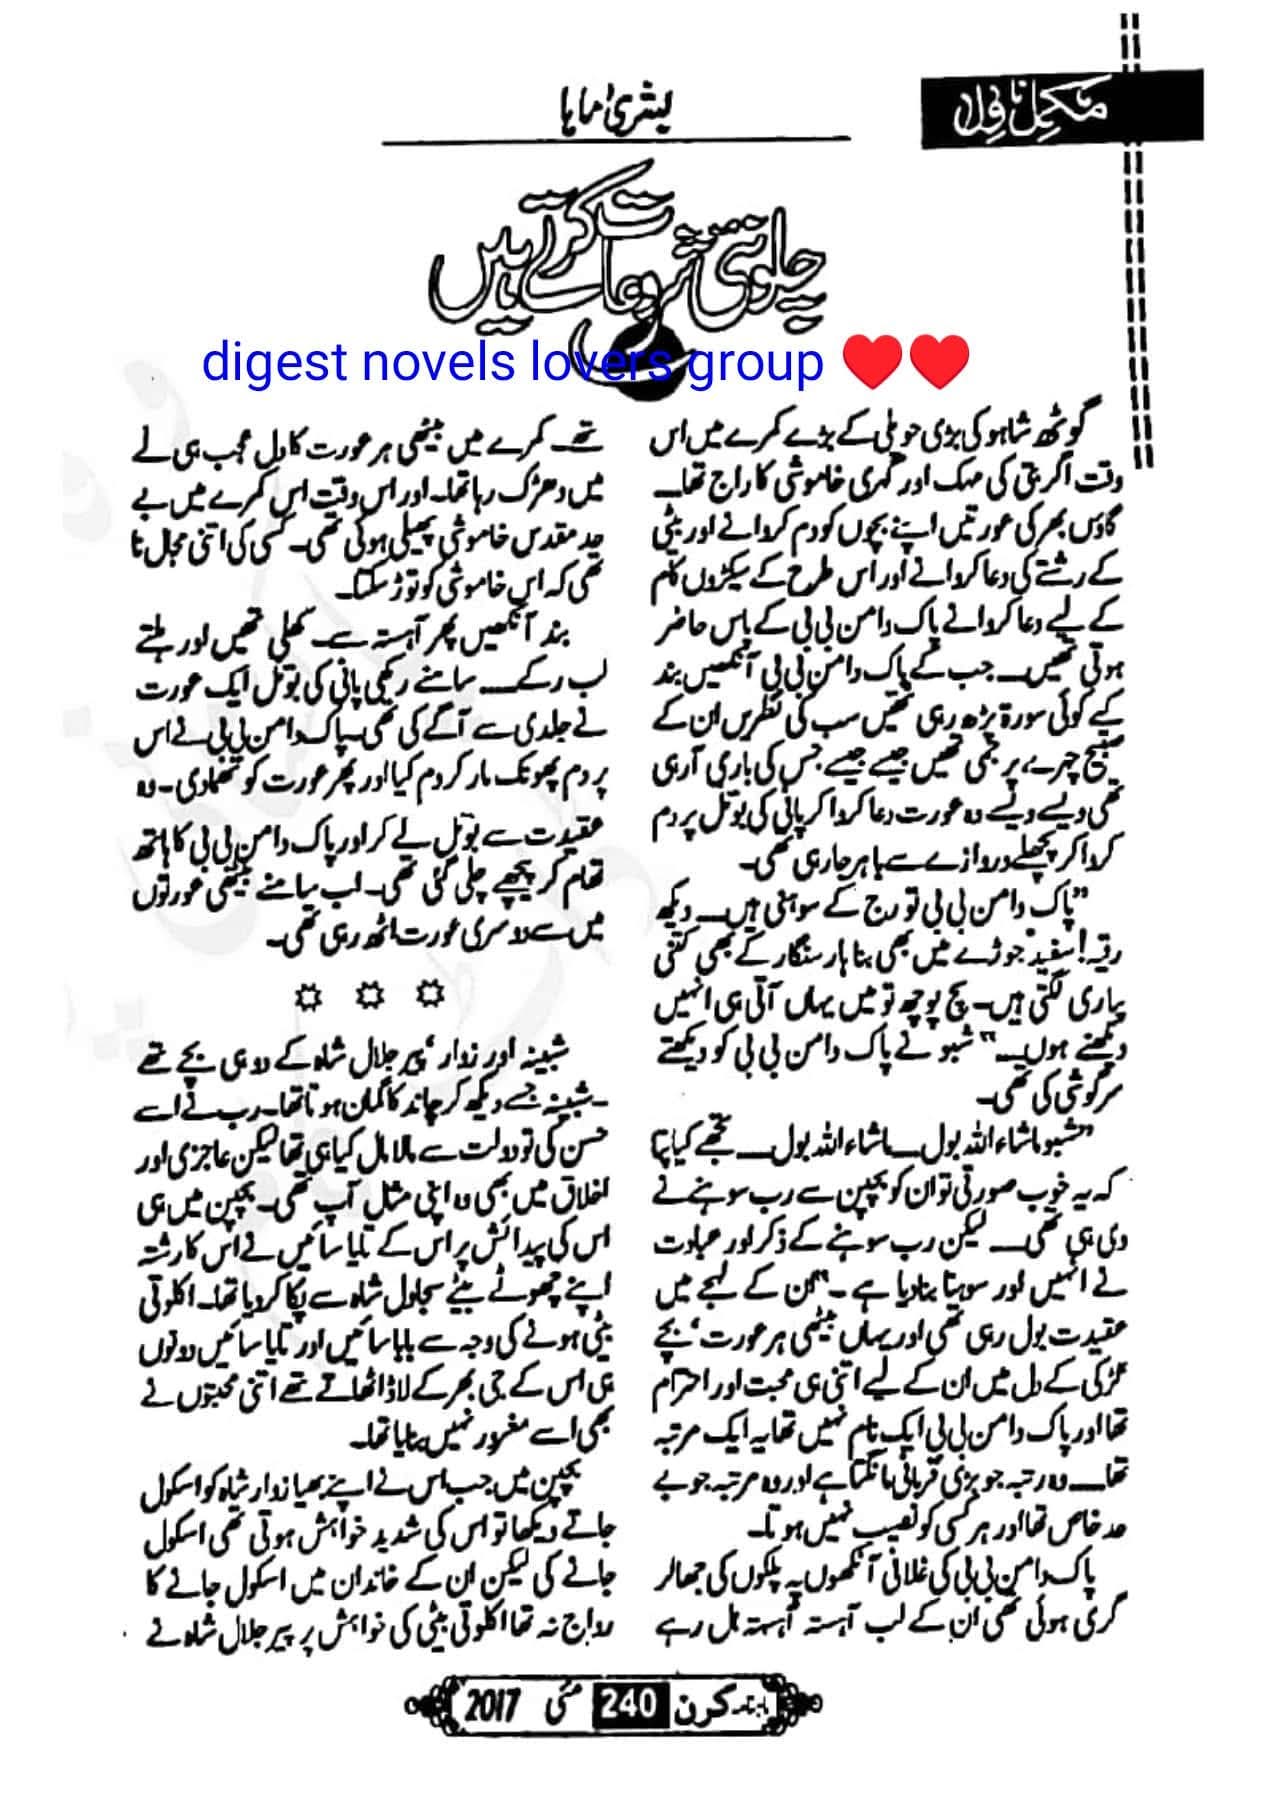 مکمل ناول
بشریٰ ماہا
چلو نئی شروعات کرتے ہیں
digest novels lovers group ❤️❤️
گوٹھ شاہو کی بڑی حویلی کے بڑے کمرے میں اس
وقت اگربتی کی مہک اور گہری خاموشی کا راج تھا۔
گاؤں بھر کی عورتیں اپنے بچوں کو دم کروانے اور بیٹی
کے رشتے کی دعا کروانے اور اس طرح کے سیکڑوں کام
کے لیے دعا کروانے پاک دامن بی بی کے پاس حاضر
ہوتی تھیں۔ جب کے پاک دامن بی بی آنکھیں بند
کیے کوئی سورۃ پڑھ رہی تھیں سب کی نظریں ان کے
صبیح چہرے پر جمی تھیں جیسے جیسے جس کی باری آرہی
تھی ویسے ویسے وہ عورت دعا کروا کر پانی کی بوتل پر دم
کروا کر پچھلے دروازے سے باہر جارہی تھی۔
”پاک دامن بی بی تو رج کے سوہنی ہیں۔ دیکھ
رقیہ! سفید جوڑے میں بھی بنا ہار سنگار کے بھی کتنی
پیاری لگتی ہیں۔ سچ پوچھ تو میں یہاں آتی ہی انہیں
دیکھنے ہوں۔“ شبو نے پاک دامن بی بی کو دیکھتے
سرگوشی کی تھی۔
”شبو ماشاء اللہ بول۔ ماشاء اللہ بول۔ تجھے کیا پتا
کہ یہ خوب صورتی تو ان کو بچپن سے رب سوہنے نے
دی ہی تھی۔ لیکن رب سوہنے کے ذکر اور عبادت
نے انہیں اور سوہنا بنا دیا ہے۔“ ان کے لہجے میں
عقیدت بول رہی تھی اور یہاں بیٹھی ہر عورت، بچے
لڑکی کے دل میں ان کے لیے اتنی ہی محبت اور احترام
تھا اور پاک دامن بی بی ایک نام نہیں تھا یہ ایک مرتبہ
تھا۔ وہ رتبہ جو بڑی قربانی مانگتا ہے اور وہ مرتبہ جو بے
حد خاص تھا اور ہر کسی کو نصیب نہیں ہوتا۔
پاک دامن بی بی کی غلافی آنکھوں پہ پلکوں کی جھالر
گری ہوئی تھی ان کے لب آہستہ آہستہ ہل رہے
تھے۔ کمرے میں بیٹھی ہر عورت کا دل عجب ہی لے
میں دھڑک رہا تھا۔ اور اس وقت اس کمرے میں بے
حد مقدس خاموشی پھیلی ہوئی تھی۔ کسی کی اتنی مجال نا
تھی کہ اس خاموشی کو توڑ سکتا۔
بند آنکھیں پھر آہستہ سے۔ کھلی تھیں اور ہلتے
لب رکے۔۔۔ سامنے رکھی پانی کی بوتل ایک عورت
نے جلدی سے آگے کی تھی۔ پاک دامن بی بی نے اس
پر دم پھونک مار کر دم کیا اور پھر عورت کو تھما دی۔ وہ
عقیدت سے بوتل لے کر اور پاک دامن بی بی کا ہاتھ
تھام کر پیچھے چلی گئی تھی۔ اب سامنے بیٹھی عورتوں
میں سے دوسری عورت اٹھ رہی تھی۔
☼ ☼ ☼
شبینہ اور زوار، پیر جلال شاہ کے دو ہی بچے تھے
۔ شبینہ جسے دیکھ کر چاند کا گمان ہوتا تھا۔ رب نے اسے
حسن کی تو دولت سے مالا مال کیا ہی تھا لیکن عاجزی اور
اخلاق میں بھی وہ اپنی مثال آپ تھی۔ بچپن میں ہی
اس کی پیدائش پر اس کے تایا سائیں نے اس کا رشتہ
اپنے چھوٹے بیٹے سجاول شاہ سے پکا کر دیا تھا۔ اکلوتی
بیٹی ہونے کی وجہ سے بابا سائیں اور تایا سائیں دونوں
ہی اس کے جی بھر کے لاڈ اٹھاتے تھے اتنی محبتوں نے
بھی اسے مغرور نہیں بنایا تھا۔
بچپن میں جب اس نے اپنے بھیا زوار شاہ کو اسکول
جاتے دیکھا تو اس کی شدید خواہش ہوتی تھی اسکول
جانے کی لیکن ان کے خاندان میں اسکول جانے کا
رواج نہ تھا اکلوتی بیٹی کی خواہش پر پیر جلال شاہ نے
ماہنامہ کرن 240 مئی 2017